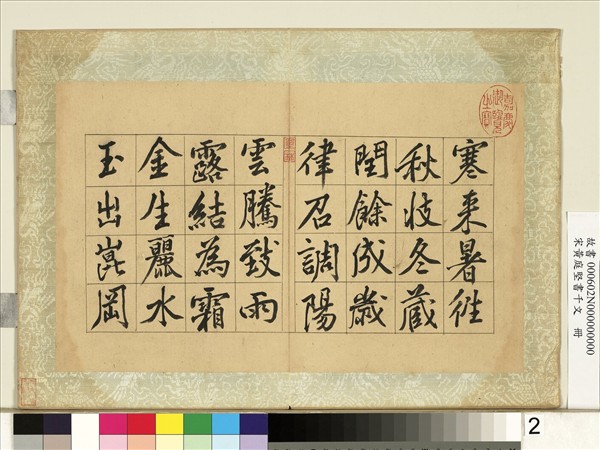 寒来暑往
秋收冬藏
閏餘成歲
律召調陽
雲騰致雨
露結為霜
金生麗水
玉出崑岡
嘉慶御覽之寶
故書 000602N000000000
宋黃庭堅書千文 冊
2